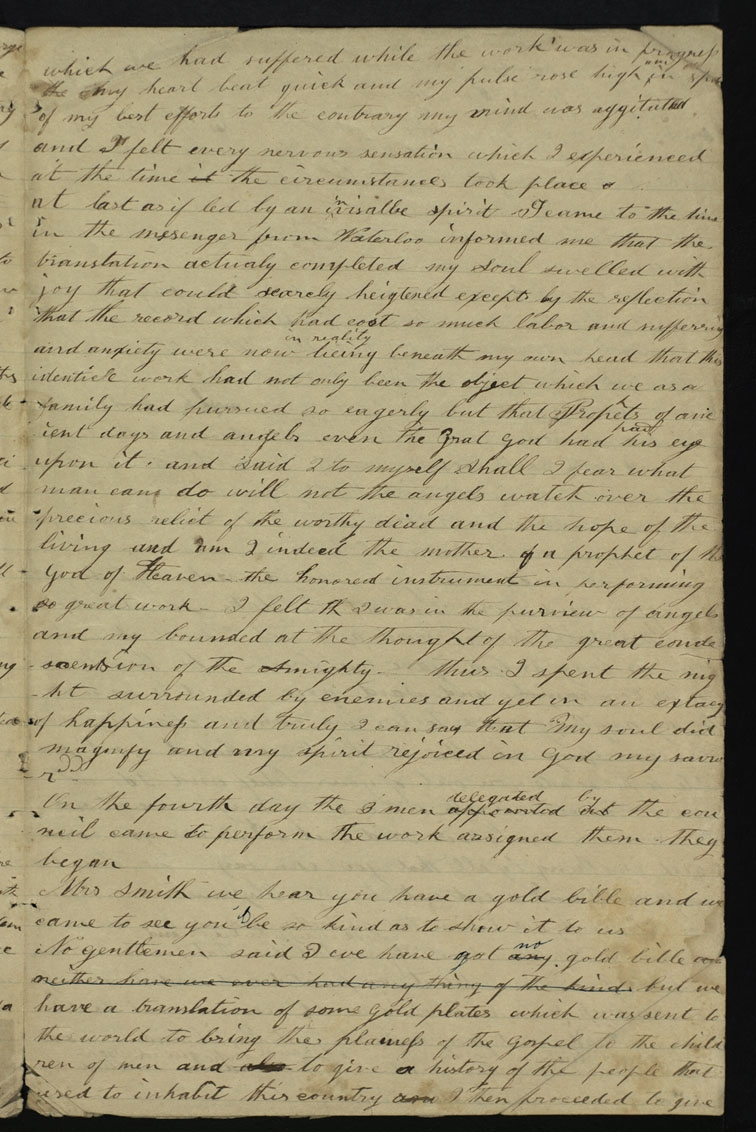 which we had suffered while the work was in progress
my heart beat quick and my pulse rose high in
of my best efforts to the contrary my mind was aggitated
and I felt every nervous sensation which I experienced
at the time it the circumstances took place
at last as if led by an invisalbe spirit I came to the time
in the messenger from Waterloo informed me that the
translation actualy completed my soul swelled with
joy that could scarcely heigtened except by the reflection
that the record which had cost so much labor and suffering
and anxiety were now in reality being beneath my own head that this
identicle work had not only been the object which we as a
family had pursued so eagerly but that Prophets of anc
ient days and angels even the grat God had his eye
upon it. and said I to myself shall I fear what
man can do will not the angels watch over the
precious relict of the worthy diad and the hope of the
living and am I indeed the mother of a prophet of the
God of Heaven- the honored instrument in performing
so great work- I felt th I was in the purview of angels
and my bounded at the thought of the great conde
-scension of the Almighty- thus I spent the nig
-ht surrounded by enemies and yet in an extacy
of happiness and truly I can say that "my soul did
magnify and my spirit rejoiced in God my savio
r"
On the fourth day the 3 men delegated by the cou
ncil came to perform the work assigned them they
began
Mrs Smith we hear you have a gold bible and we
came to see you be so kind as to show it to us
No gentlemen said I we have got no any gold bible
neither have we ever had any thing of the kind but we
have a translation of some gold plates which was sent to
the world to bring the plainess of the gospel to the child
ren of men and also to give a history of the people that
used to inhabit this country I then proceeded to give